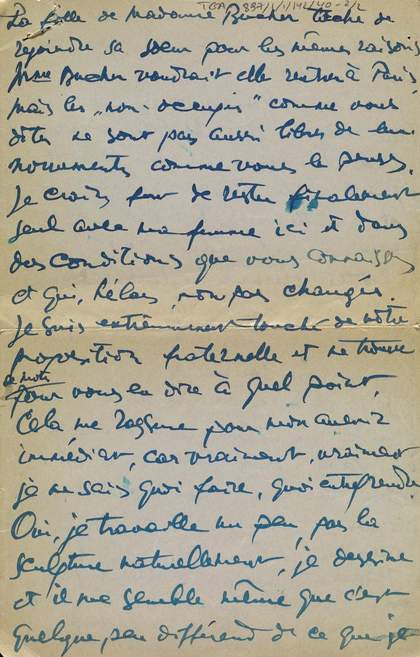 TGA 887/1/1/142/40-2/2
La fille de Madame Bucher tâche de
rejoindre sa soeur pour les mêmes raisons
Mme Bucher voudrait elle rentrer à Paris,
mais les „non-occupés" comme vous
dites ne sont pas aussi libres de leurs
mouvements comme vous le pensez.
Je crains fort de rester finalement
seul avec ma femme ici et dans
des conditions que vous connaissez
et qui, hélas, non pas changés.
Je suis extrêmement touché de votre
proposition fraternelle et ne trouve
de mots
pour vous en dire à quel point.
Cela me rassure pour mon avenir
immédiat, car vraiment, vraiment
je ne sais quoi faire, quoi entreprendre
Oui, je travaille un peu, pas la
sculpture naturellement, je dessine
et il me semble même que c'est
quelque peu différend de ce que je